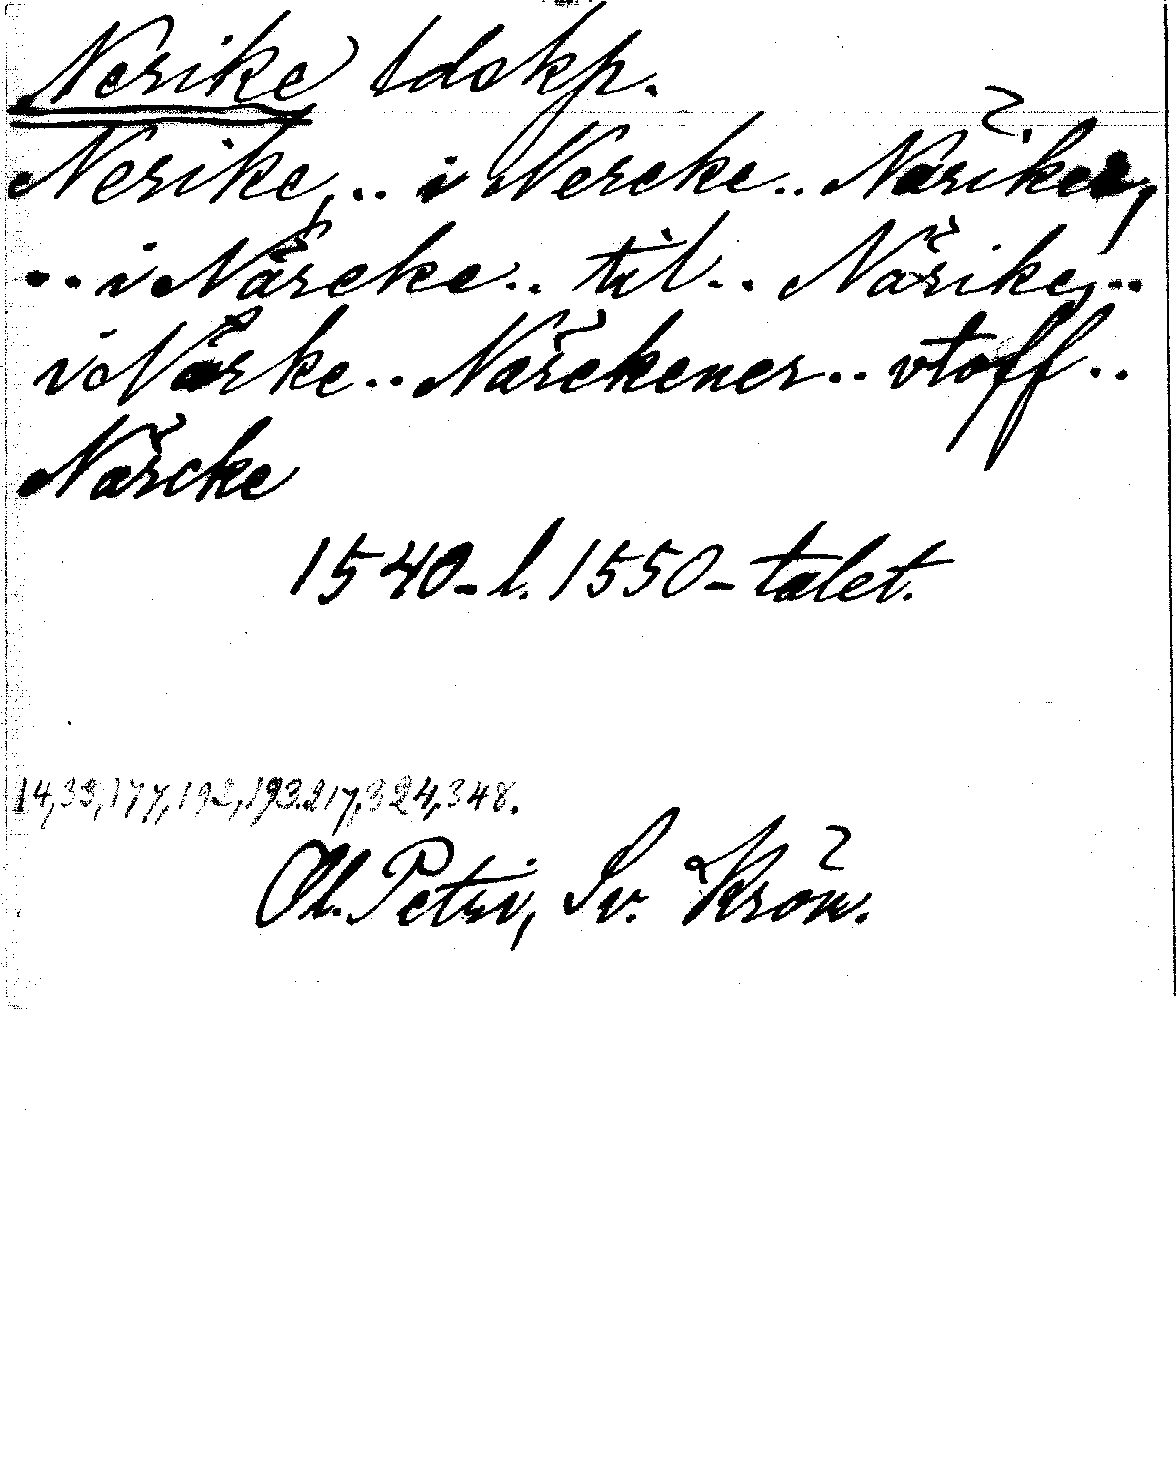 Nerike) ldskp.
Nerike, .. i Nercke .. Näriker,
.. i Närcke .. til .. Närike, ..
i Närke .. Närckener .. vtoff ..
Närcke
1540- l. 1550-talet.
14, 33, 177, 192, 193. 217, 324, 348.
Ol. Petri, Sv. Krön.